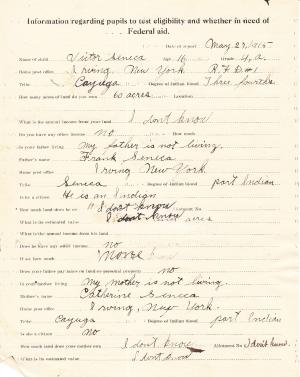 Information regarding pupils to test eligibility and whether in need of
Federal aid.
Date of report May 27, 1915
Name of child Victor Seneca Age 16 Grade 4, a.
Home post office Irving, New York R.F.D #1
Tribe Cayuga Degree of Indian blood Three fourths
How many acres of land do you own? 60 acres Location
What is the annual income from your land I dont know
Do you have any other income no How much
Is your father living My father is not living.
Father's name Frank Seneca
Home post office Irving New York.
Tribe Seneca Degree of Indian blood part Indian
Is he a citizen He is an Indian
How much land does he own I dont know Allotment No.
What is the estimated value I dont know acres
What is the annual income from his land
Does he have any other income no
If so, how much None
Does your father pay taxes on land or personal property no
Is your mother living My mother is not living.
Mother's name Catherine Seneca
Home post office Irving, New York.
Tribe Cayuga Degree of Indian blood part Indian
Is she a citizen No
How much land does your mother own I dont know Allotment No. I dont know
What is its estimated value I dont know